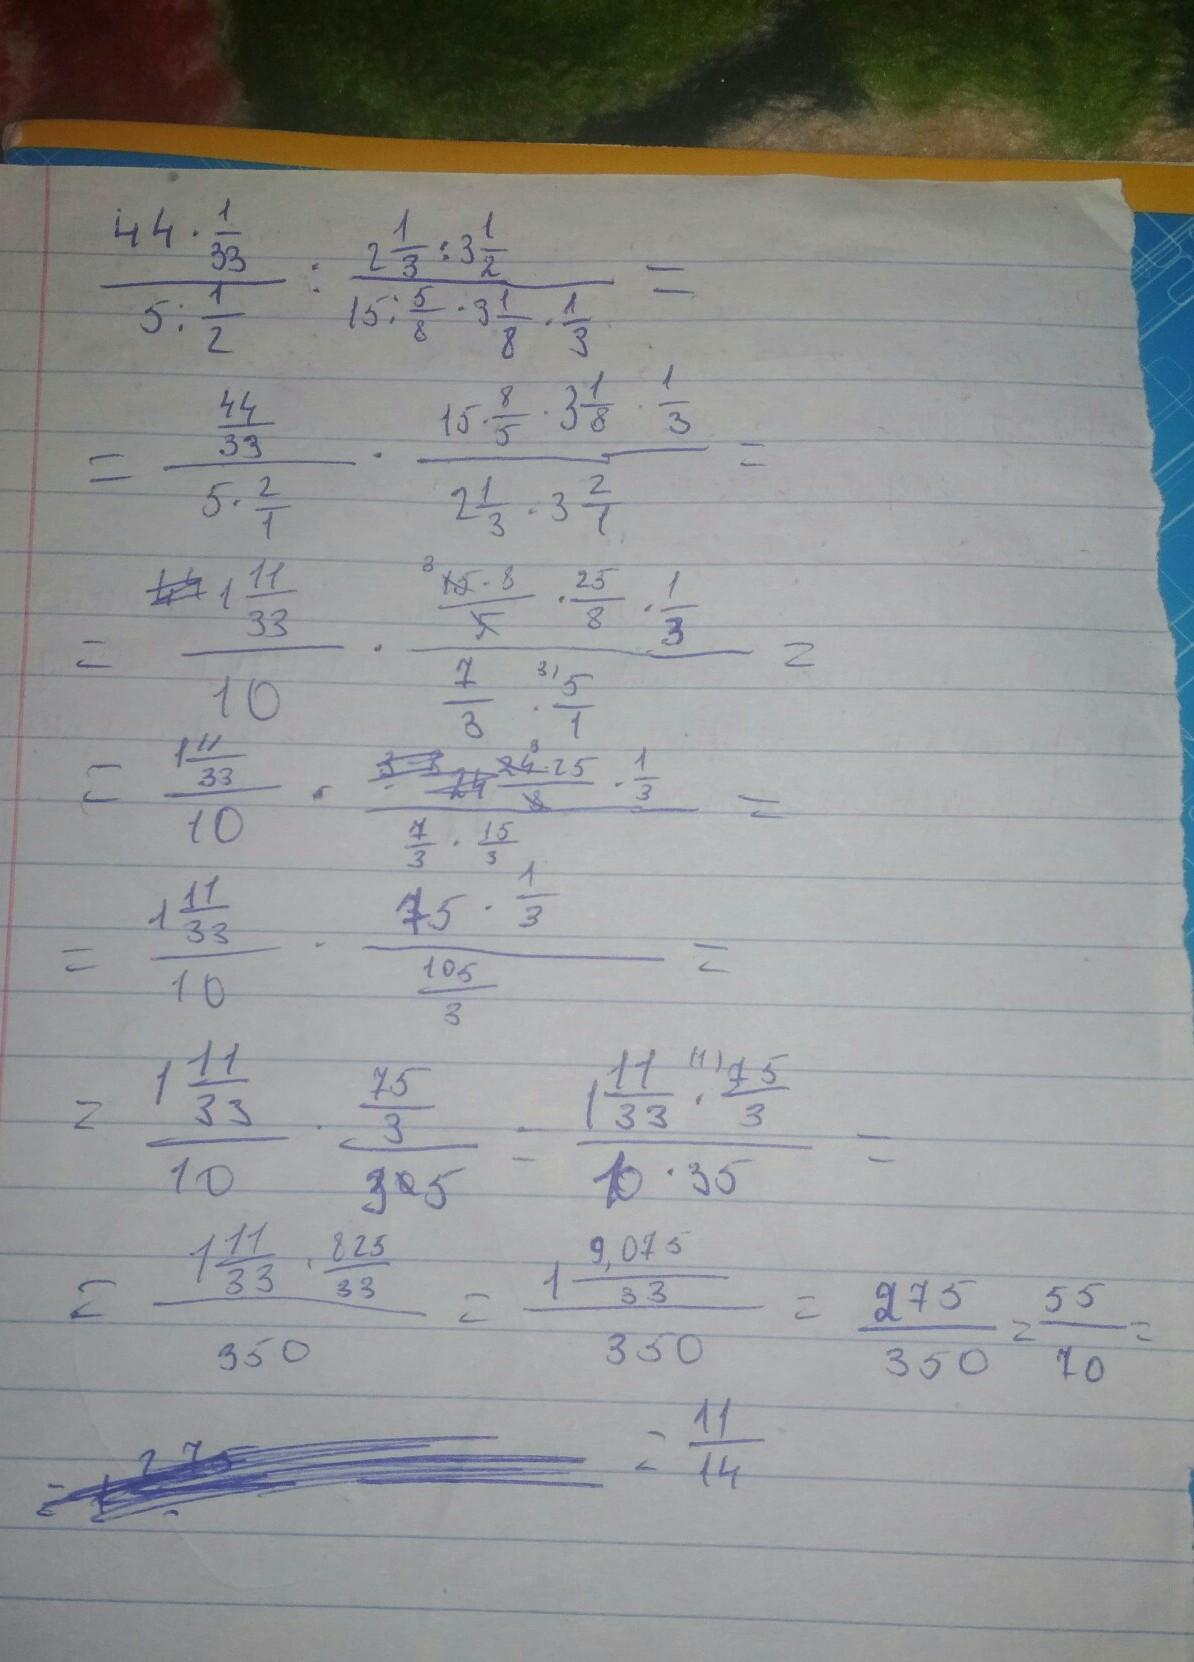 (44 · 1/33)/(5 : 1/2) : (2 1/3 : 3 1/2)/(15 : 5/8 · 3 1/8 · 1/3) =
= (44/33)/(5 · 2/1) · (15 · 8/5 · 3 1/8 · 1/3)/(2 1/3 · 3 2/1) =
= (1 11/33)/10 · (15 · 8/5 · 25/8 · 1/3)/(7/3 · 5/1) =
= (1 11/33)/10 · (24 · 25/8 · 1/3)/(7/3 · 15/3) =
= (1 11/33)/10 · (75 · 1/3)/(105/3) =
= (1 11/33)/10 · (75/3)/35 = (1 11/33 · 75/3)/(10 · 35) =
= (1 11/33 · 825/33)/350 = (1 9,075/33)/350 = 275/350 = 55/70 =
= 11/14